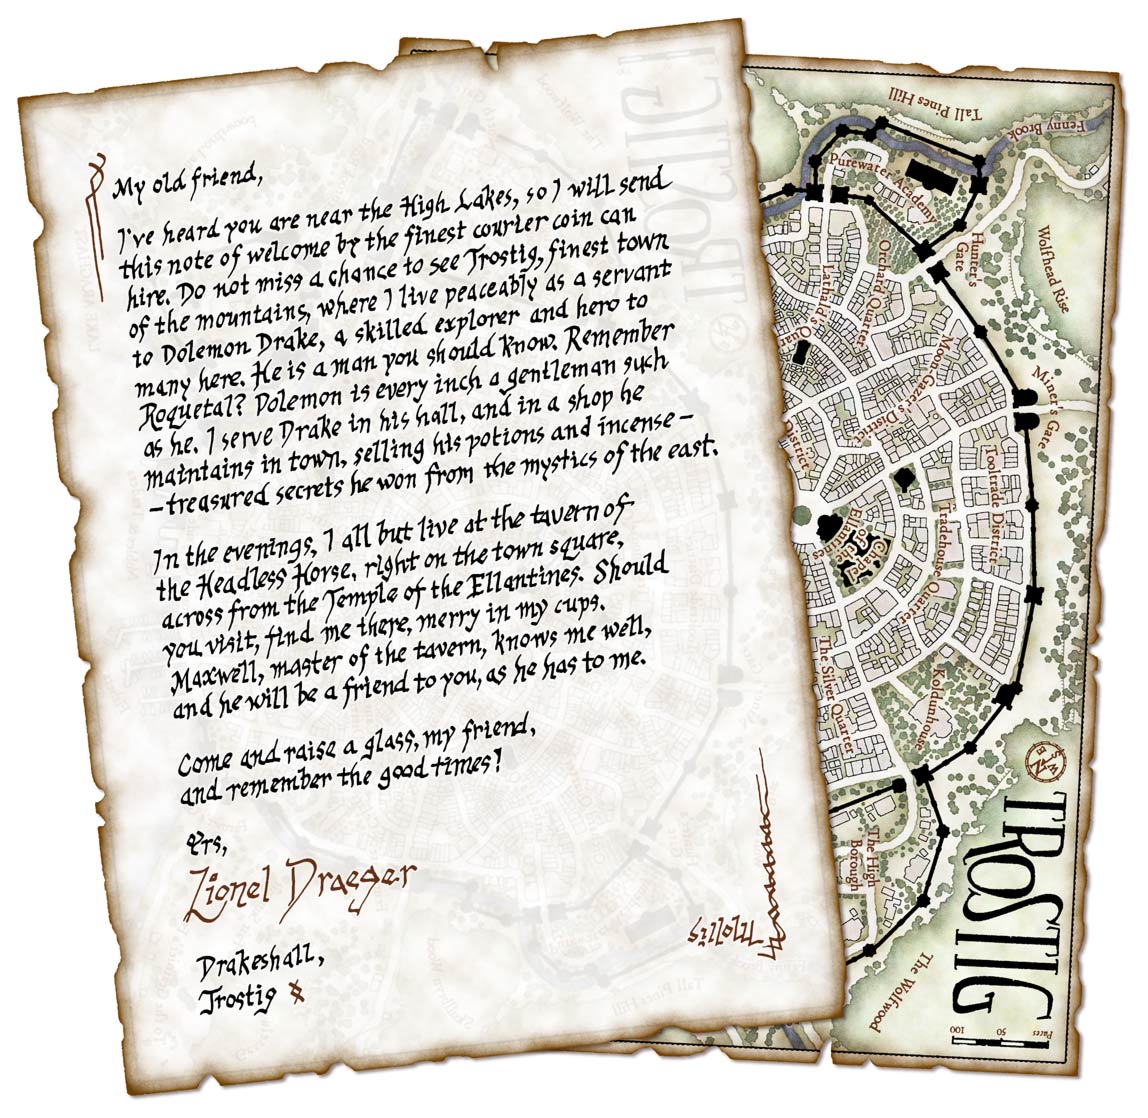 My old friend,
I've heard you are near the High Lakes, so I will send
this note of welcome by the finest courier coin can
hire. Do not miss a chance to see Trostig, finest town
of the mountains, where I live peaceably as a servant
to Dolemon Drake, a skilled explorer and hero to
many here. He is a man you should know. Remember
Roquetal? Dolemon is every inch a gentleman such
as he. I serve Drake in his hall, and in a shop he
maintains in town, selling his potions and incense—
—treasured secrets he won from the mystics of the east.
In the evenings, I all but live at the tavern of
the Headless Horse, right on the town square,
across from the Temple of the Ellantines. Should
you visit, find me there, merry in my cups.
Maxwell, master of the tavern, knows me well,
and he will be a friend to you, as he has to me.
Come and raise a glass, my friend,
and remember the good times!
Yrs,
Lionel Draeger
Drakeshall,
Trostig
Tall Pines Hill
Fenny Brook
Purewater Academy
Hunter's
Gate
Wolfhead Rise
Orchard Quarter
Lathad's
Moon-Gazer's District
Miner's Gate
District
Tooltrade District
Tradehouse Quarter
Chapel
of the
Ellantines
The Silver Quarter
Koldunhouse
The High
Borough
The Wolfwood
TROSTIG
N
E
S
W
Paces
50
100